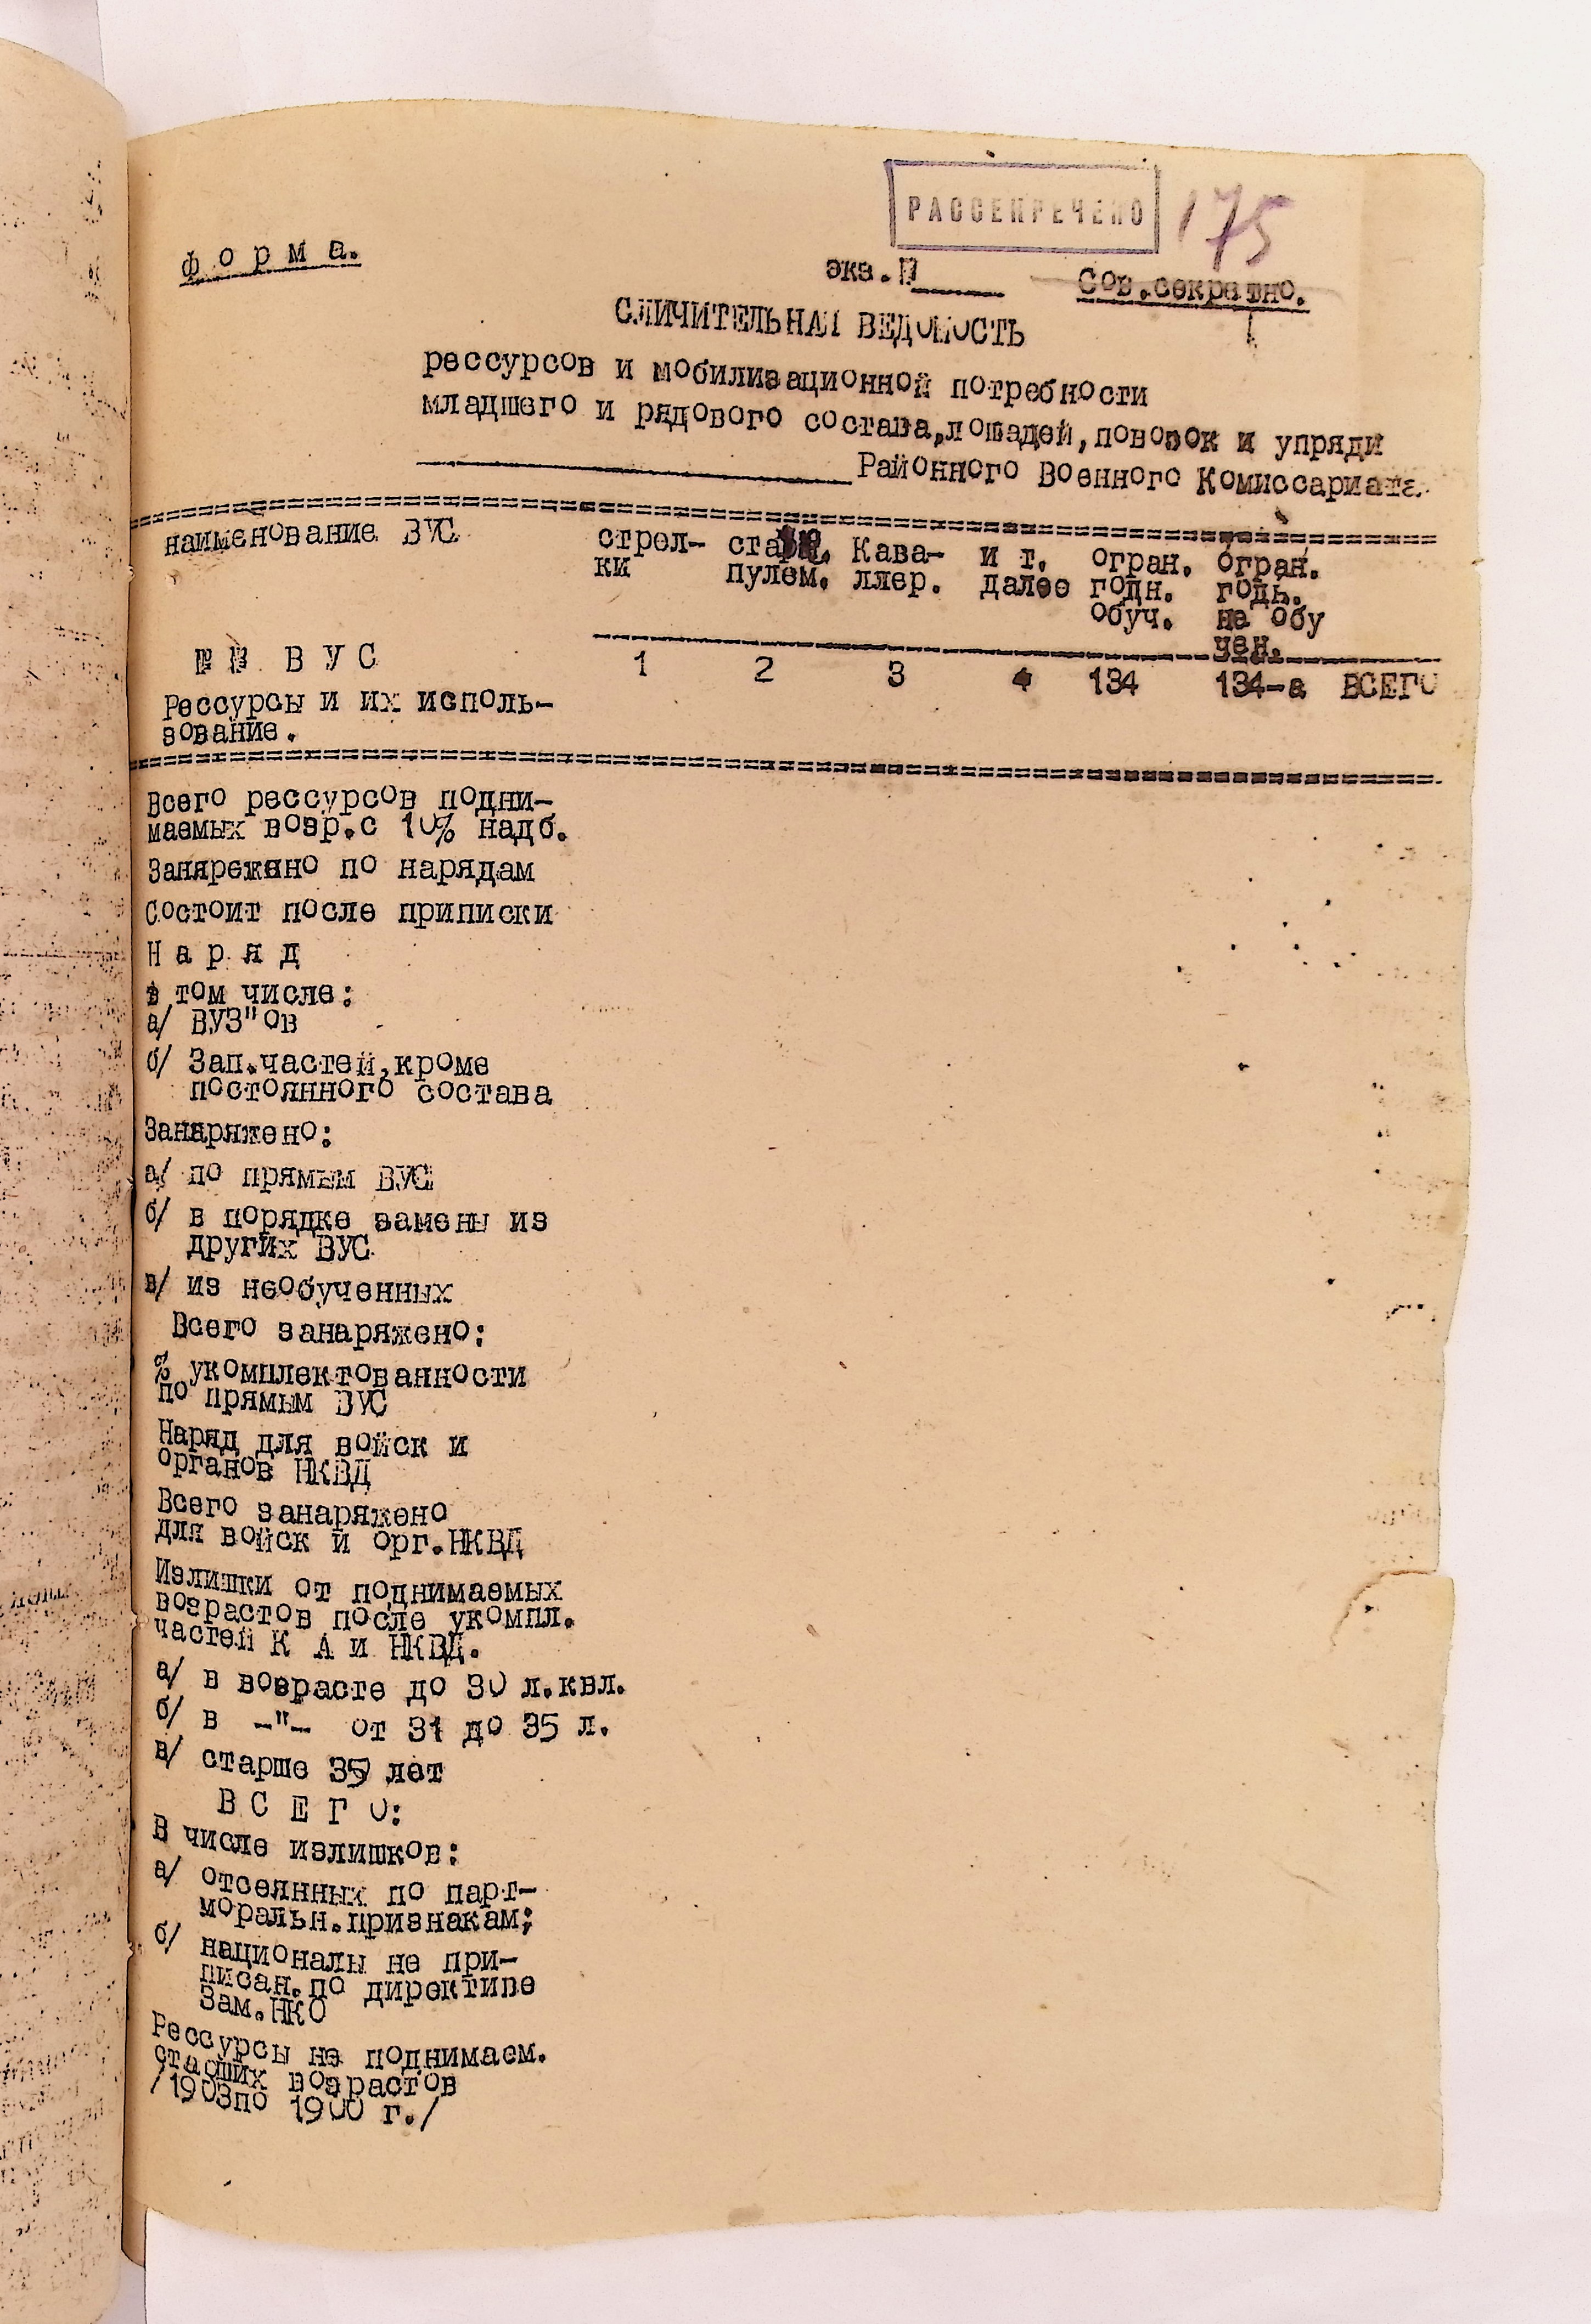 РАССЕКРЕЧЕНО
175
Ф о р м а.
экз.№
Сов.секратно.
СЛИЧИТЕЛЬНАЯ ВЕДОМОСТЬ
рессурсов и мобилизационной потребности
младшего и рядового состава,лошадей,повозок и упряди
Районного Военного Комиссариата
наименование ВУС стрел- Кава- и т. огран. огран.
ки пулем. ллер. далее годн. годн.
обуч. на обу
чен.
№№ ВУС 1 2 3 4 134 134-а ВСЕГО
Рессурсы и их исполь-
зование.
Всего рессурсов подни-
маемых возр.с 10% надб.
Занаряжено по нарядам
Состоит после приписки
Н а р я д
в том числе:
а/ ВУЗ"ов
б/ Зап.частей,кроме
постоянного состава
Занаряжено:
а/ по прямым ВУС
б/ в порядке замены из
других ВУС
в/ из необученных
Всего занаряжено:
% укомплектованности
по прямым ВУС
Наряд для войск и
органов НКВД
Всего занаряжено
для войск и орг.НКВД
Излишки от поднимаемых
возрастов после укомпл.
частей К А и НКВД.
а/ в возрасте до 30 л.квл.
б/ в -"- от 31 до 35 л.
в/ старше 35 лет
В С Е Г О:
В числе излишков:
а/ отсеянных по парт-
моральн.признакам;
б/ националы не при-
писан.по директиве
Зам.НКО
Рессурсы не поднимаем.
старших возрастов
/1903по 1900 г./